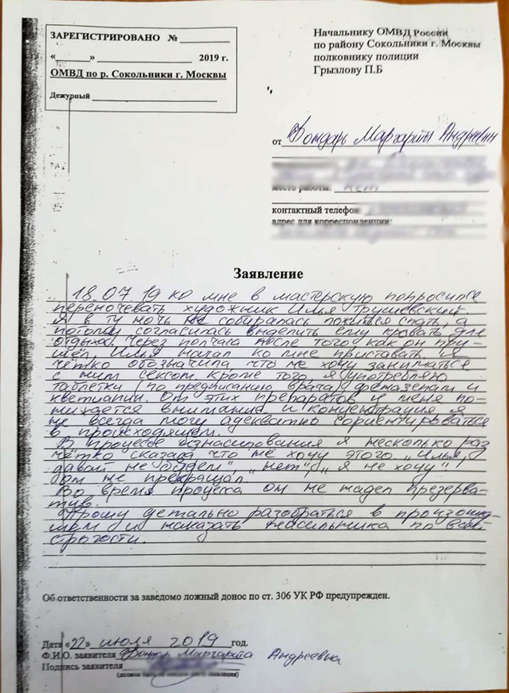 ЗАРЕГИСТРИРОВАНО № 
« » 2019 г.
ОМВД по р. Сокольники г. Москвы
Дежурный
Начальнику ОМВД России
по району Сокольники г. Москвы
полковнику полиции
Грызлову П.Б
от Бондарь Маргариты Андреевны
место работы: нет
контактный телефон
адрес для корреспонденции:
Заявление
18.07.19 ко мне в мастерскую попросился
переночевать художник Илья Трушевский.
Я в ту ночь не собиралась ложиться спать, а
потом согласилась выделить ему кровать для
отдыха. Через полчаса после того как он при-
шел, Илья начал ко мне приставать. Я
чётко обозначила что не хочу заниматься
с ним сексом. Кроме того я употребляю
таблетки (по предписанию врача) феназепам и
кветиапин. От этих препаратов у меня по-
нижается внимание и концентрация, я
не всегда могу адекватно сориентироваться
в происходящем.
В процессе изнасилования я несколько раз
чётко сказала что не хочу этого „Илья,
давай не будем", „нет", „я не хочу"!
Он не прекращал.
Во время процесса он не надел презерва-
тив.
Прошу детально разобраться в произошед-
шем и наказать насильника по всей
строгости.
Об ответственности за заведомо ложный донос по ст. 306 УК РФ предупрежден.
Дата «22» июля 2019 год.
Ф.И.О. заявителя Маргарита Андреевна
Подпись заявителя